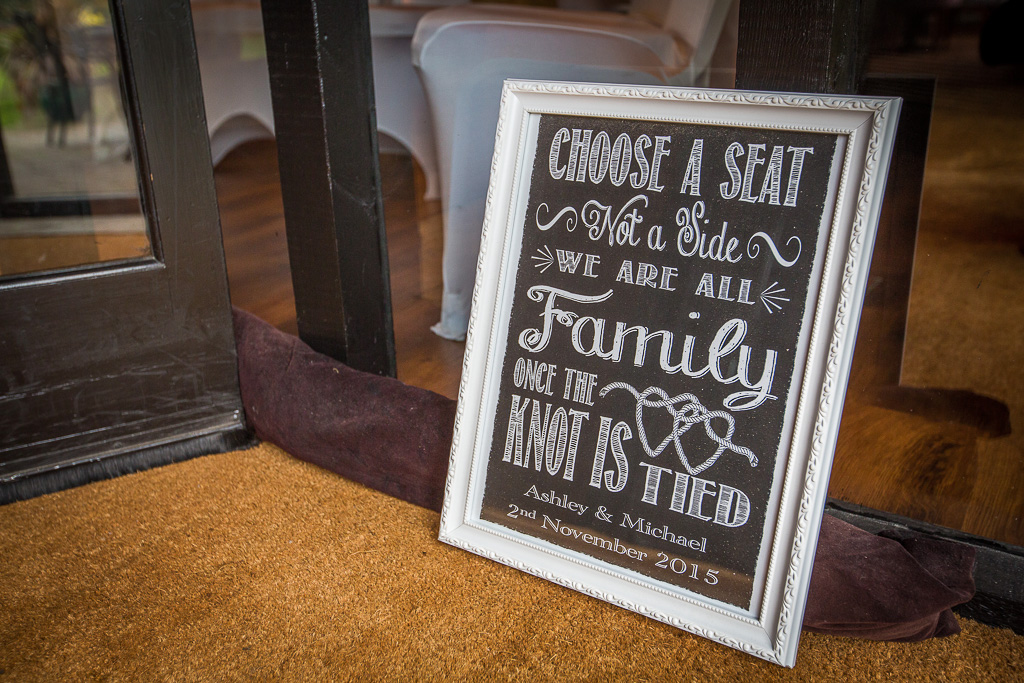 CHOOSE A SEAT
Not a Side
WE ARE ALL
Family
ONCE THE
KNOT IS
TIED
Ashley & Michael
2nd November 2015